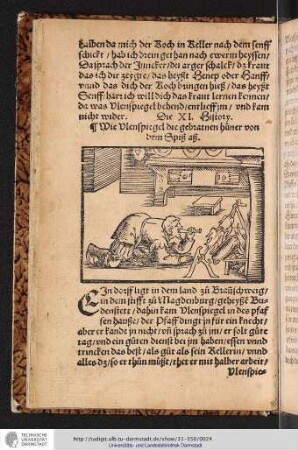 halben da mich der Koch in Keller nach dem senff
schickt / hab ich drein gethan nach ewerm heyssen /
Da sprach der Juncker / du arger schalck / dz kraut
das ich dir zeygte / das heyßt Henep oder Hanff /
vnnd das dich der Koch bringen hieß / das heyßt
Senff hart ich will dich das kraut lernen kennen /
da was Vlenspiegel behend / entlieff jm / vnd kam
nicht wider. Die XI. History.
¶ Wie Vlenspiegel die gebratnen hüner von
dem Spiß aß.
EIn dorff ligt in dem land zů Braůschweig /
in dem stifft zů Magdenburg / geheyßt Bu-
denstett / dahin kam Vlenspiegel in des pfaf
fen hauße / der Pfaff dingt jn für ein knecht /
aber er kandt jn nicht / vñ sprach zů jm / er solt gůte
tag / vnd ein gůten dienst bei jm haben / essen vnnd
trincken das best / als gůt als sein Kellerin / vnnd
alles dz / so er thůn můßt / thet er mit halber arbeit /
Vlenspie⸗
TECHNISCHE
UNIVERSITÄT
DARMSTADT
http://tudigit.ulb.tu-darmstadt.de/show/31-350/0024
Universitäts- und Landesbibliothek Darmstadt